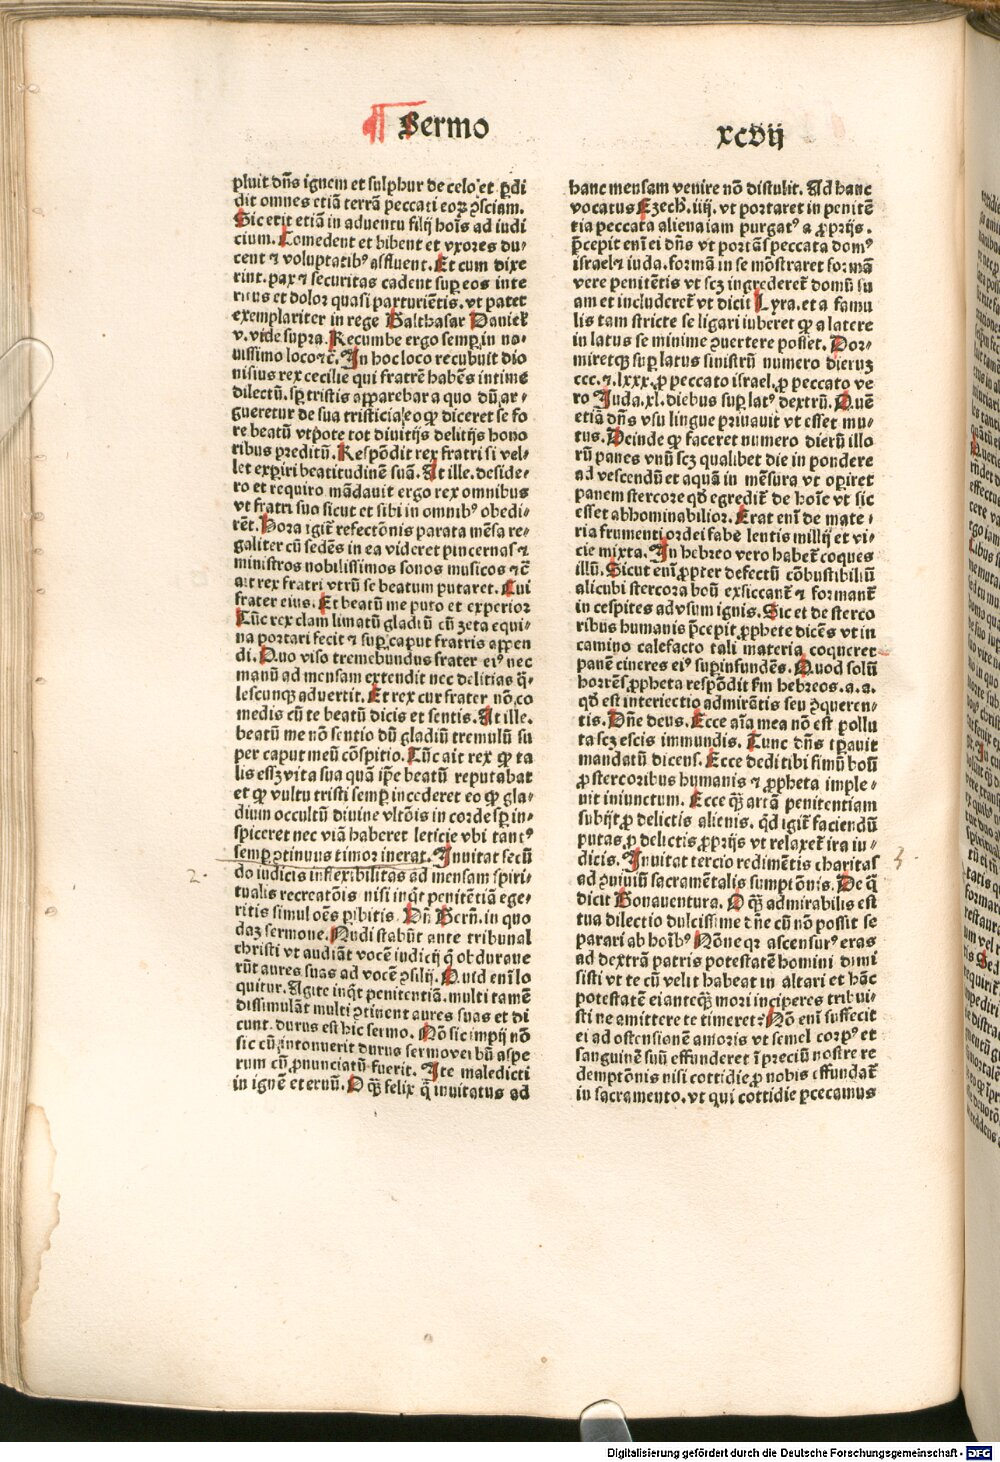 Sermo
xcvij
pluit dn̄s ignem et sulphur de celo et ꝑdi
dit omnes etiā terrā peccati eoꝝ ꝯsciam.
Sic erit etiā in aduentu filij hoīs ad iudi
cium. Comedent et bibent et vxores du⸗
cent ⁊ voluptatibꝰ affluent. Et cum dixe
rint. pax ⁊ securitas cadent suꝑ eos inte
ritus et dolor quasi parturiētis. vt patet
exemplariter in rege Balthasar Danieł
v. vide supra. Recumbe ergo semꝑ in no⸗
uissimo loco ⁊c̄. In hoc loco recubuit dio
nisius rex cecilie qui fratrē habēs intime
dilectū. sꝑ tristis apparebar a quo dū ar⸗
gueretur de sua tristicia/eo ꝙ diceret se fo
re beatū vtpote tot diuitijs delitijs hono
ribus preditū. Respōdit rex fratri si vel⸗
let exꝑiri beatitudinē suā. At ille. deside⸗
ro et requiro. mādauit ergo rex omnibus
vt fratri suo sicut et sibi in omnibꝰ obedi⸗
rēt. Hora igit̄ refectōnis parata mēsa re⸗
galiter cū sedēs in ea videret pincernas ⁊
ministros nobilissimos sonos musicos ⁊c̄
ait rex fratri vtrū se beatum putaret. Cui
frater eius. Et beatū me puto et experior
Tūc rex clam limatū gladiū cū zeta equi⸗
na portari fecit ⁊ suꝑ caput fratris appen
di. Quo viso tremebundus frater eiꝰ nec
manū ad mensam extendit nec delitias q̄⸗
lescunqꝫ aduertit. Et rex cur frater nō co
medis cū te beatū dicis et sentis. At ille.
beatū me nō sentio dū gladiū tremulū su
per caput meū cōspitio. Tūc ait rex ꝙ ta
lis eēt vita sua quā ip̄e beatū reputabat
et ꝙ vultu tristi semꝑ incederet eo ꝙ gla⸗
dium occultū diuine vltōis in corde sꝑ in⸗
spiceret nec viā haberet leticie vbi tantꝰ
semꝑ ꝯtinuus timor inerat. Inuitat secū
do iudicis inflexibilitas ad mensam spiri⸗
tualis recreatōis nisi inqͣt penitētiā ege⸗
ritis simul oēs ꝑibitis. Dn̄ Bern̄. in quo
daꝫ sermone. Nudi stabūt ante tribunal
christi vt audiāt vocē iudicij q̄ obduraue
rūt aures suas ad vocē ꝯsilij. Quid enī lo
quitur. Agite inqͥt penitentiā. multi tamē
dissimulāt multi ꝯtinent aures suas et di
cunt. durus est hic sermo. Nō sic impij nō
sic cū intonuerit durus sermo vei bū aspe
rum cū ꝓnunciatū fuerit. Ite maledicti
in ignē eternū. O qͣꝫ felix q̄ inuitatus ad
hanc mensam venire nō distulit. Ad hanc
vocatus Ezech. iiij. vt portaret in penitē
tia peccata aliena iam purgatꝰ a ꝓprijs.
p̄cepit enī ei dn̄s vt portās peccata domꝰ
israel ⁊ iuda. formā in se mōstraret formā
vere penitētis vt scꝫ ingrederet̄ domū su
am et includeret̄ vt dicit Lyra. et a famu
lis tam stricte se ligari iuberet ꝙ a latere
in latus se minime ꝯuertere posset. Dor⸗
miretqꝫ suꝑ latus sinistrū numero dieruꝫ
ccc. ⁊. lxxx. ꝓ peccato israel. ꝓ peccato ve
ro Juda. xl. diebus suꝑ latꝰ dextrū. Quē
etiā dn̄s vsu lingue priuauit vt esset mu⸗
tus. Deinde ꝙ faceret numero dierū illo
rū panes vnū scꝫ qualibet die in pondere
ad vescendū et aquā in mēsura vt oꝑiret
panem stercore qd̄ egredit̄ de hoīe vt sic
esset abhominabilior. Erat enī de mate⸗
ria frumenti ordei fabe lentis millij et vi⸗
cie mixta. In hebreo vero habet̄ coques
illū. Sicut enī ꝓpter defectū cōbustibiliū
alicubi stercora boū exsiccant̄ ⁊ formant̄
in cespites ad vsum ignis. Sic et de sterco
ribus humanis p̄cepit ꝓphete dicēs vt in
camino calefacto tali materia coqueret
panē cineres eiꝰ suꝑinfundēs. Quod solū
horrēs ꝓpheta respōdit fm hebreos. a. a.
qd̄ est interiectio admirātis seu ꝯqueren⸗
tis. Dn̄e deus. Ecce aīa mea nō est pollu
ta scꝫ escis immundis. Tunc dn̄s tꝑauit
mandatū dicens. Ecce dedi tibi fimū boū
ꝓ stercoribus humanis ⁊ ꝓpheta imple⸗
uit iniunctum. Ecce qͣꝫ artā penitentiam
subijt ꝓ delictis alienis. qd̄ igit̄ faciendū
putas ꝓ delictis ꝓprijs vt relaxet̄ ira iu⸗
dicis. Inuitat tercio redimētis charitas
ad ꝯuiuiū sacramētalis sumptōnis. De q̄
dicit Bonauentura. O qͣꝫ admirabilis est
tua dilectio dulcissime dn̄e cū nō possit se
parari ab hoībꝰ Nōne eqr ascensurꝰ eras
ad dextrā patris potestatē homini dimi
sisti vt te cū velit habeat in altari et hāc
potestatē ei anteqͣꝫ mori inciperes tribui⸗
sti ne amittere te timeret? Nō enī suffecit
ei ad ostensionē amoris vt semel corpꝰ et
sanguinē suū effunderet ī preciū nostre re
demptōnis nisi cottidie ꝓ nobis effundat̄
in sacramento. vt qui cottidie ꝑcecamus
2.
3.
Digitalisierung gefördert durch die Deutsche Forschungsgemeinschaft - DFG